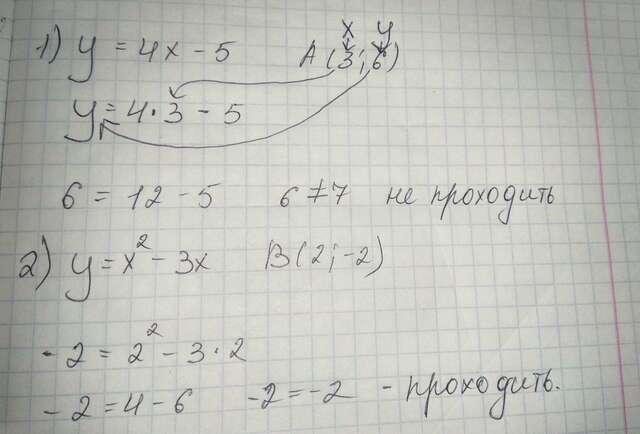 x y
1) y = 4x - 5 A (3; 6)
y = 4 · 3 - 5
6 = 12 - 5 6 ≠ 7 не проходить
2) y = x² - 3x B (2; -2)
- 2 = 2² - 3 · 2
- 2 = 4 - 6 -2 = -2 - проходить.